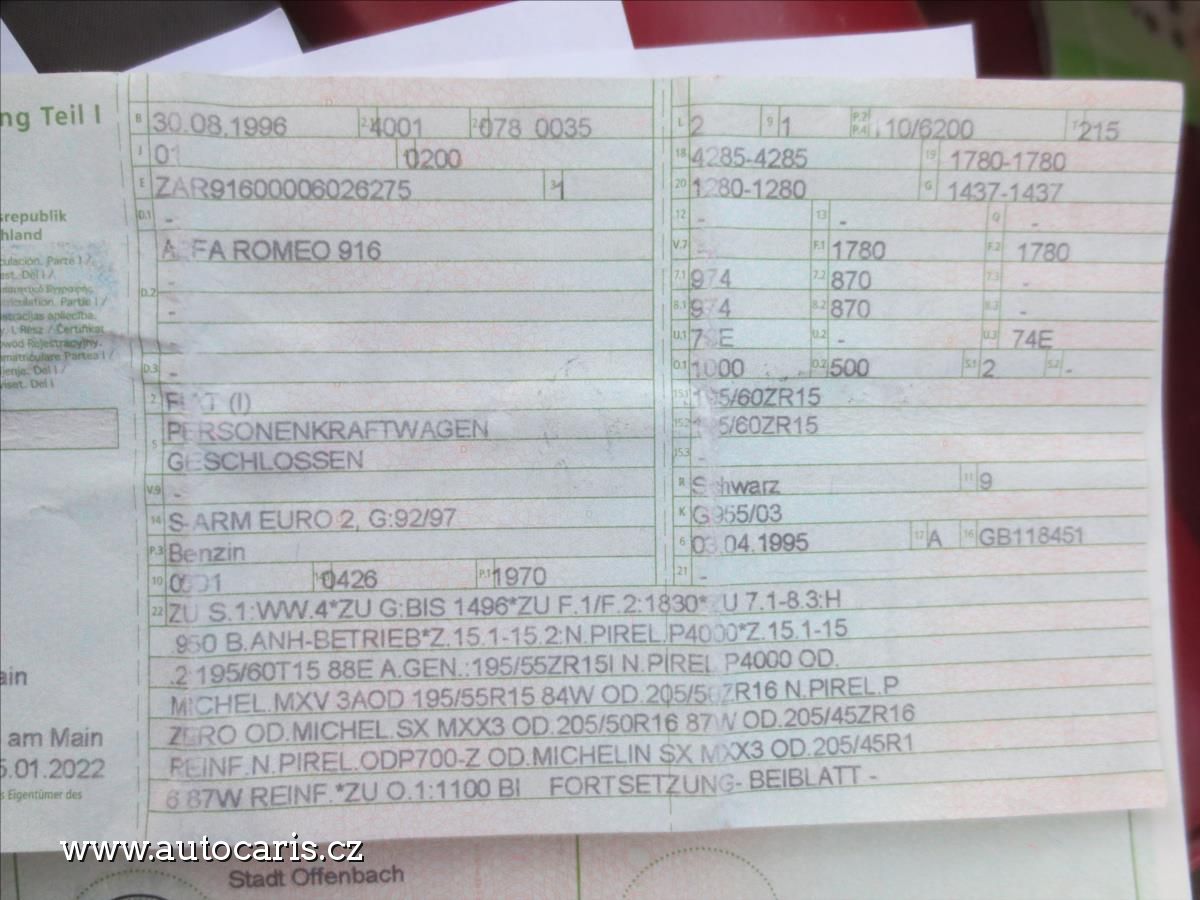 ng Teil I
srepublik
hland
B 30.08.1996 4001 078 0035
J 01 0200
E ZAR91600006026275 1
D.1 -
ALFA ROMEO 916
D.2 -
-
D.3 -
2 FIAT (I)
PERSONENKRAFTWAGEN
5 GESCHLOSSEN
V.9 -
14 S-ARM EURO 2, G:92/97
P.3 Benzin
10 0001 0426 P.1 1970
L 2 9 1 P.2 P.4 110/6200 T 215
18 4285-4285 19 1780-1780
20 1280-1280 G 1437-1437
12 - 13 - Q -
V.7 F.1 1780 F.2 1780
7.1 974 7.2 870 7.3 -
8.1 974 8.2 870 8.3 -
U.1 U.2 - U.3 74E
O.1 1000 O.2 500 S.1 2 S.2 -
15.1 195/60ZR15
15.2 195/60ZR15
15.3
R Schwarz 11 9
K G955/03
6 03.04.1995 17 A 16 GB118451
21 -
22 ZU S.1:WW.4*ZU G:BIS 1496*ZU F.1/F.2:1830*ZU 7.1-8.3:H
.950 B.ANH-BETRIEB*Z.15.1-15.2:N.PIREL.P4000*Z.15.1-15
.2 195/60T15 88E A.GEN.:195/55ZR15I N.PIREL.P4000 OD.
MICHEL.MXV 3AOD 195/55R15 84W OD.205/50ZR16 N.PIREL.P
ZERO OD.MICHEL.SX MXX3 OD.205/50R16 87W OD.205/45ZR16
REINF.N.PIREL.ODP700-Z OD.MICHELIN SX MXX3 OD.205/45R1
6 87W REINF.*ZU O.1:1100 BI FORTSETZUNG- BEIBLATT -
ain
am Main
5.01.2022
s Eigentümer des
www.autocaris.cz
Stadt Offenbach